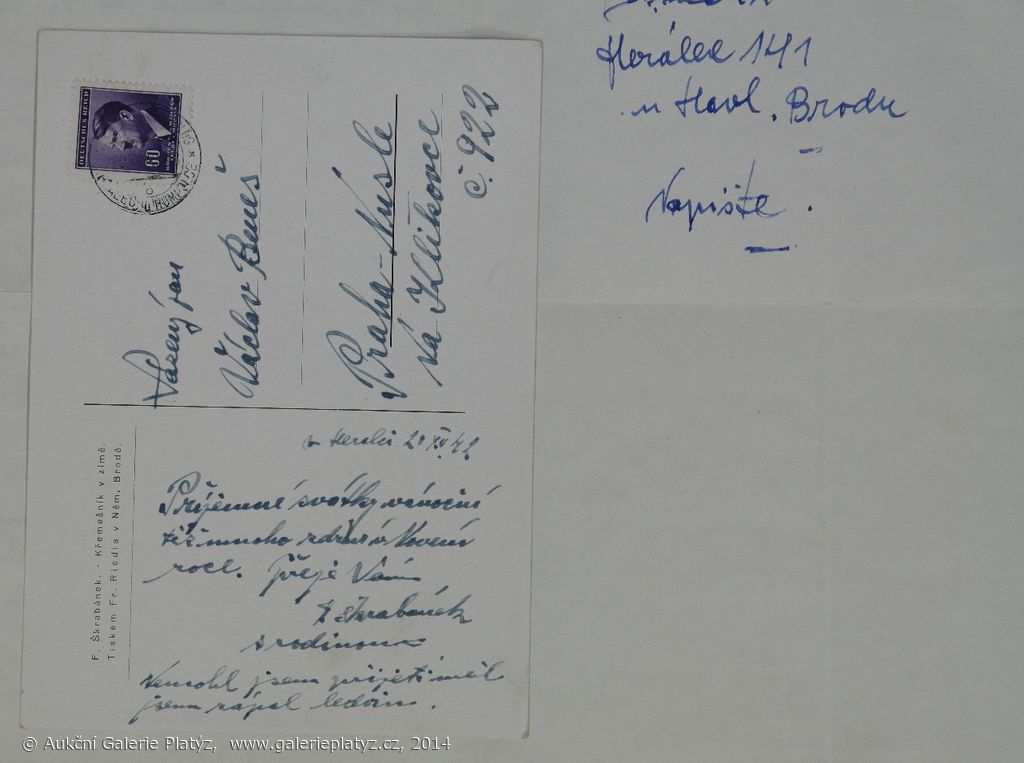 Herálec 141
u Havl. Brodu
Napište.
DEUTSCHES REICH
60
HUMPOLCE
Vážený pan
Václav Beneš
Praha - Nusle
na Klikovce
č. 922
F. Škrabánek. - Křemešník v zimě.
Tiskem Fr. Riedla v Něm. Brodě.
v Herálci 20 XII 42
Příjemné svátky vánoční
též mnoho zdraví v Novém
roce. přeje Vám
F Škrabánek
s rodinou
Nemohl jsem přijeti měl
jsem zápal ledvin.
© Aukční Galerie Platýz, www.galerieplatyz.cz, 2014